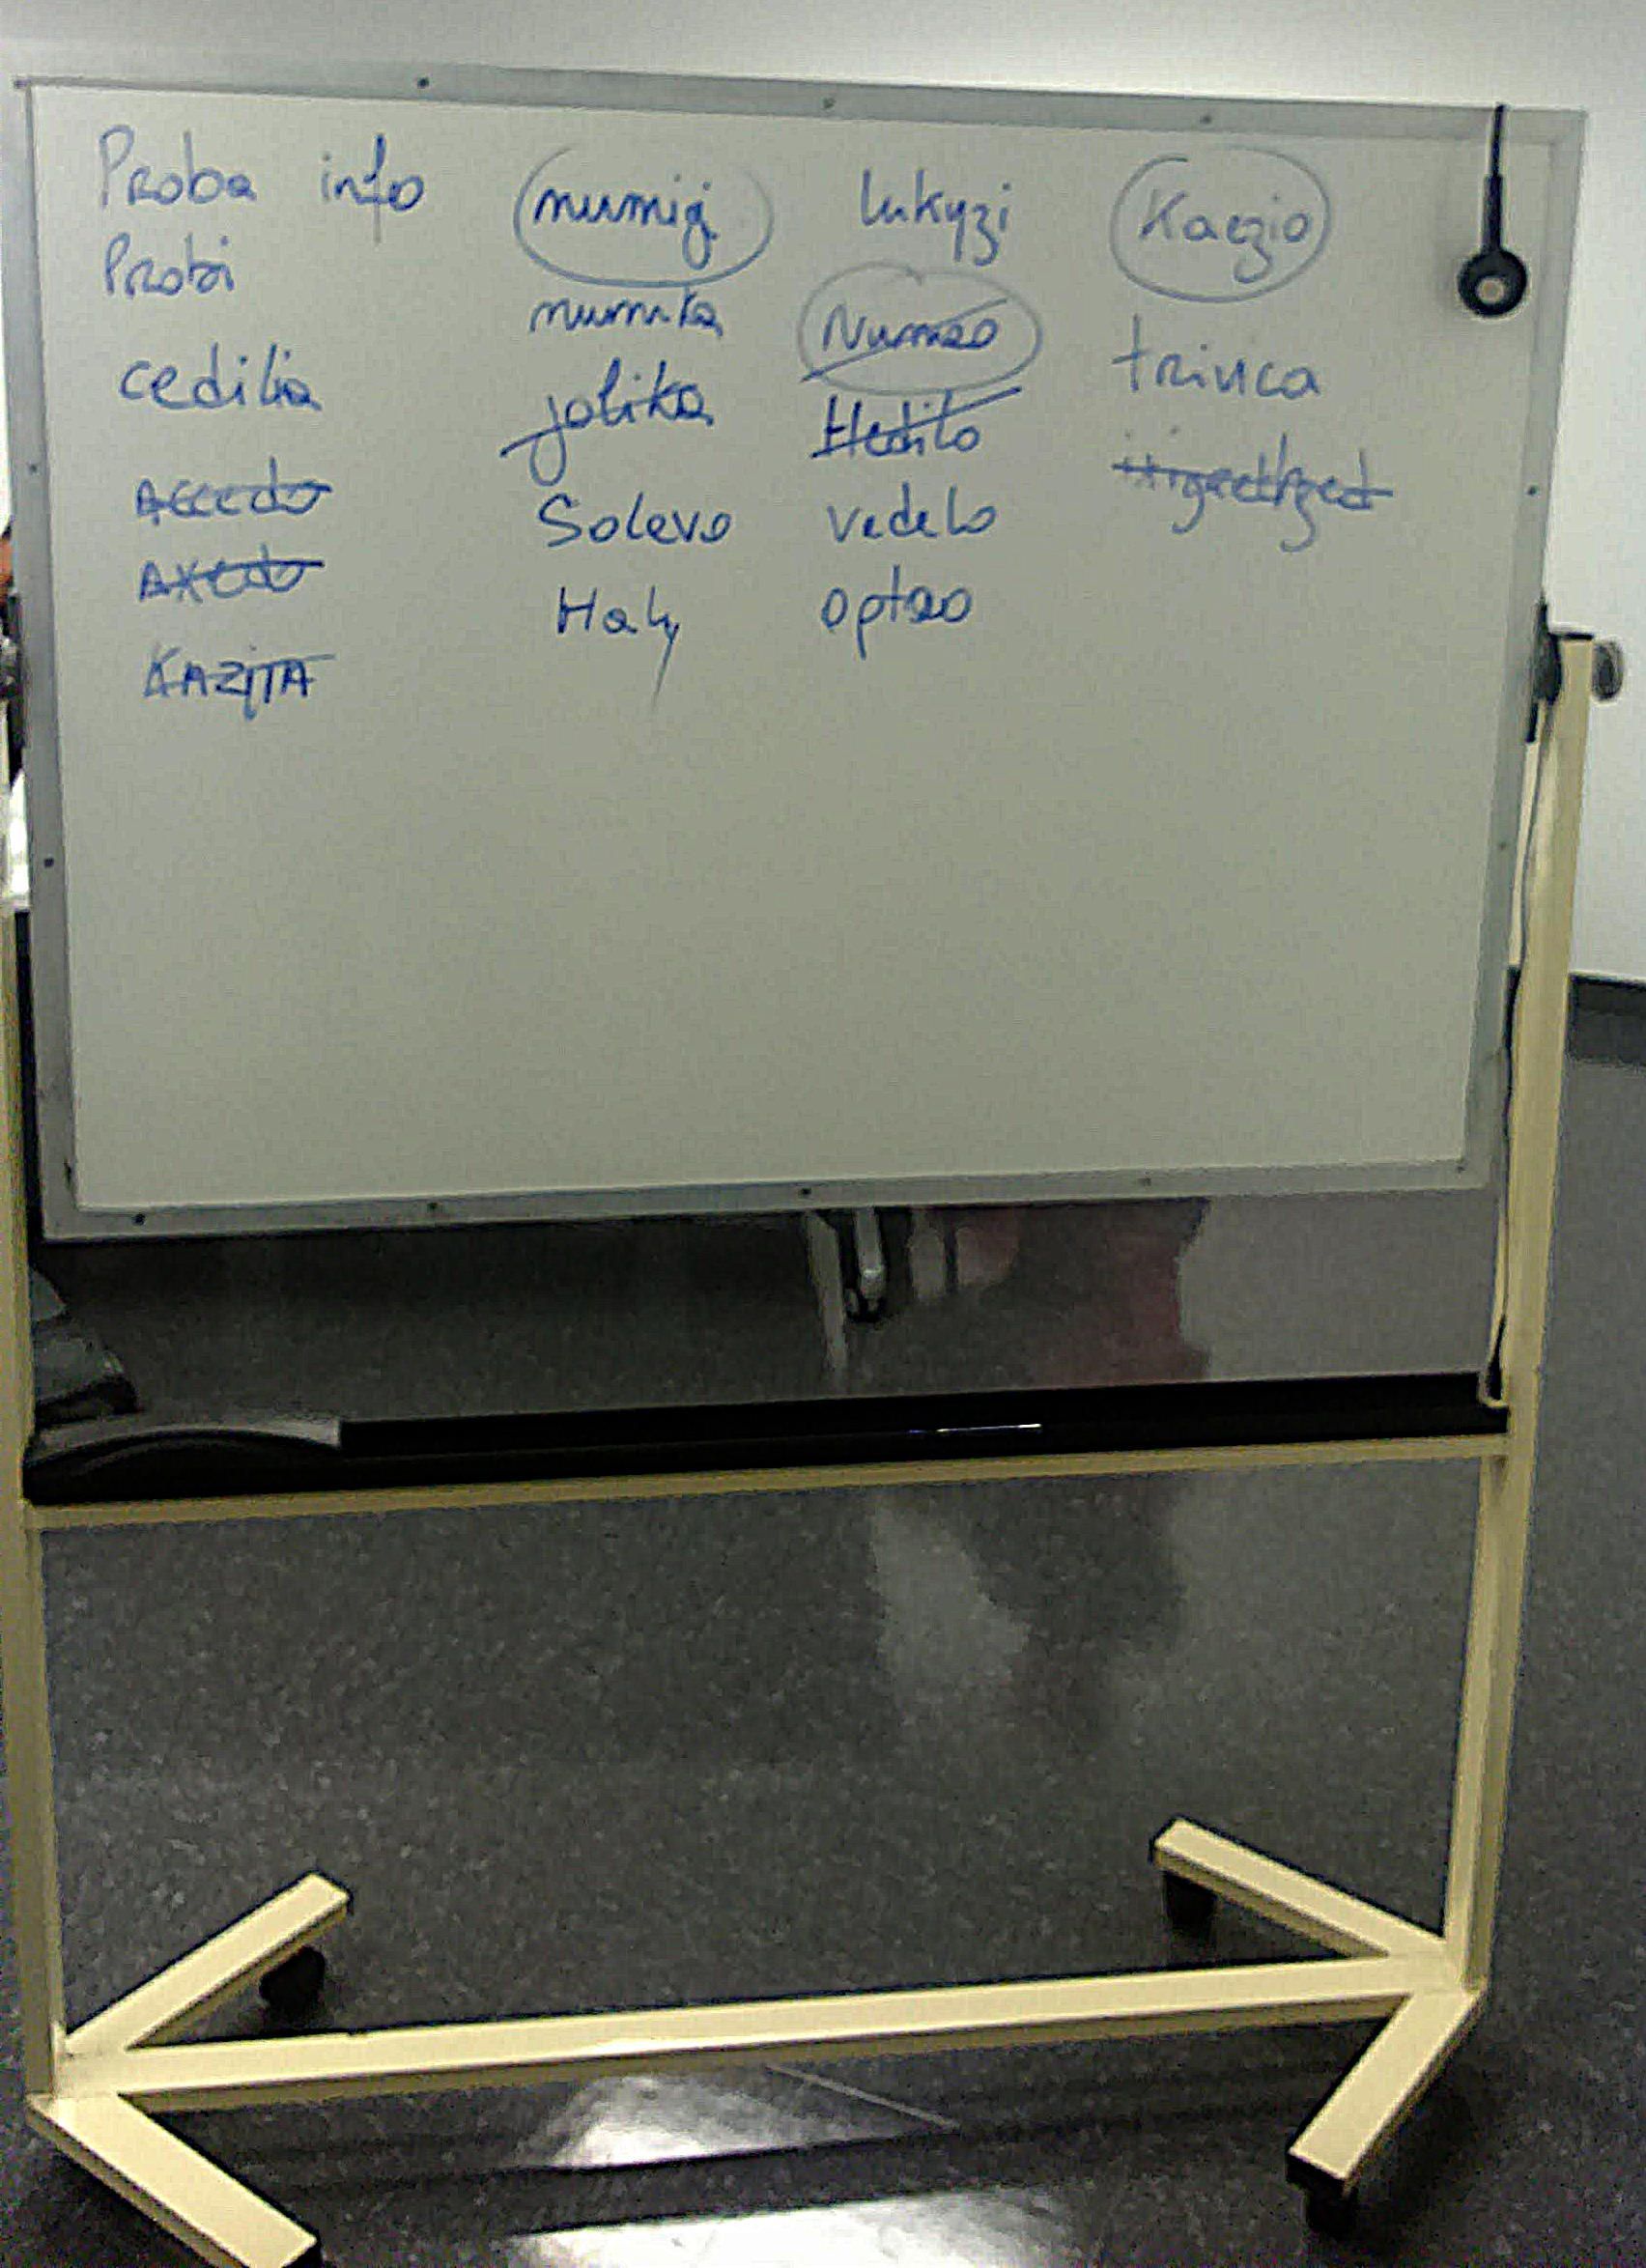 Proba info
Probi
cedilia
Accedo
Axedo
KAZITA
numig
numika
jolika
Solevo
Haly
lukyzi
Numeo
Hedilo
vedelo
opteo
Kaezio
trinca